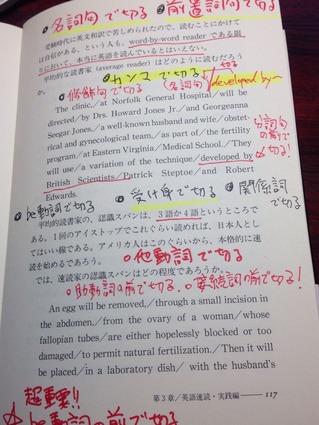 ①名詞句で切る ②前置詞句で切る
受験時代に英文和訳で苦しめられたので、読むことにかけて
は自信がある、という人も、word-by-word reader である限
りにおいて、本当に英語を読んでいるとはいえない。
平均的な読書家 (average reader) はどのように読むだろう
カンマで切る
切る
(名詞句)
developed by〜
修飾句で切る
The clinic／at Norfolk General Hospital／will be
directed／by Drs. Howard Jones Jr／and Georgeanna
Seegar Jones／a well-known husband and wife／obstet-
rical and gynecological team／as part of／the fertility
program／at Eastern Virginia／Medical School／They
will／use a variation of the technique／developed by
British Scientists／Patrick Steptoe／and Robert
Edwards.
分詞句の前で切る!
受け身で切る
関係詞で切る
be動詞で切る
平均的読書家の、認識スパンは、3語か4語というところで
ある。1回のアイストップでこれぐらい読めれば、日本人とし
てはいい線である。アメリカ人はこのぐらいから、本格的に速
読を始めるであろう。
他動詞で切る
では、速読家のスパンはどの程度であろうか。
助動詞の前で切る。
接続詞の前で切る!
An egg will be removed,／through a small incision in
the abdomen,／from the ovary of a woman／whose
fallopian tubes／are either hopelessly blocked or too
damaged／to permit natural fertilization.／Then it will
be placed／in a laboratory dish／with the husband's
第3章／英語速読・実践編 117
超重要!!
be動詞の前で切る